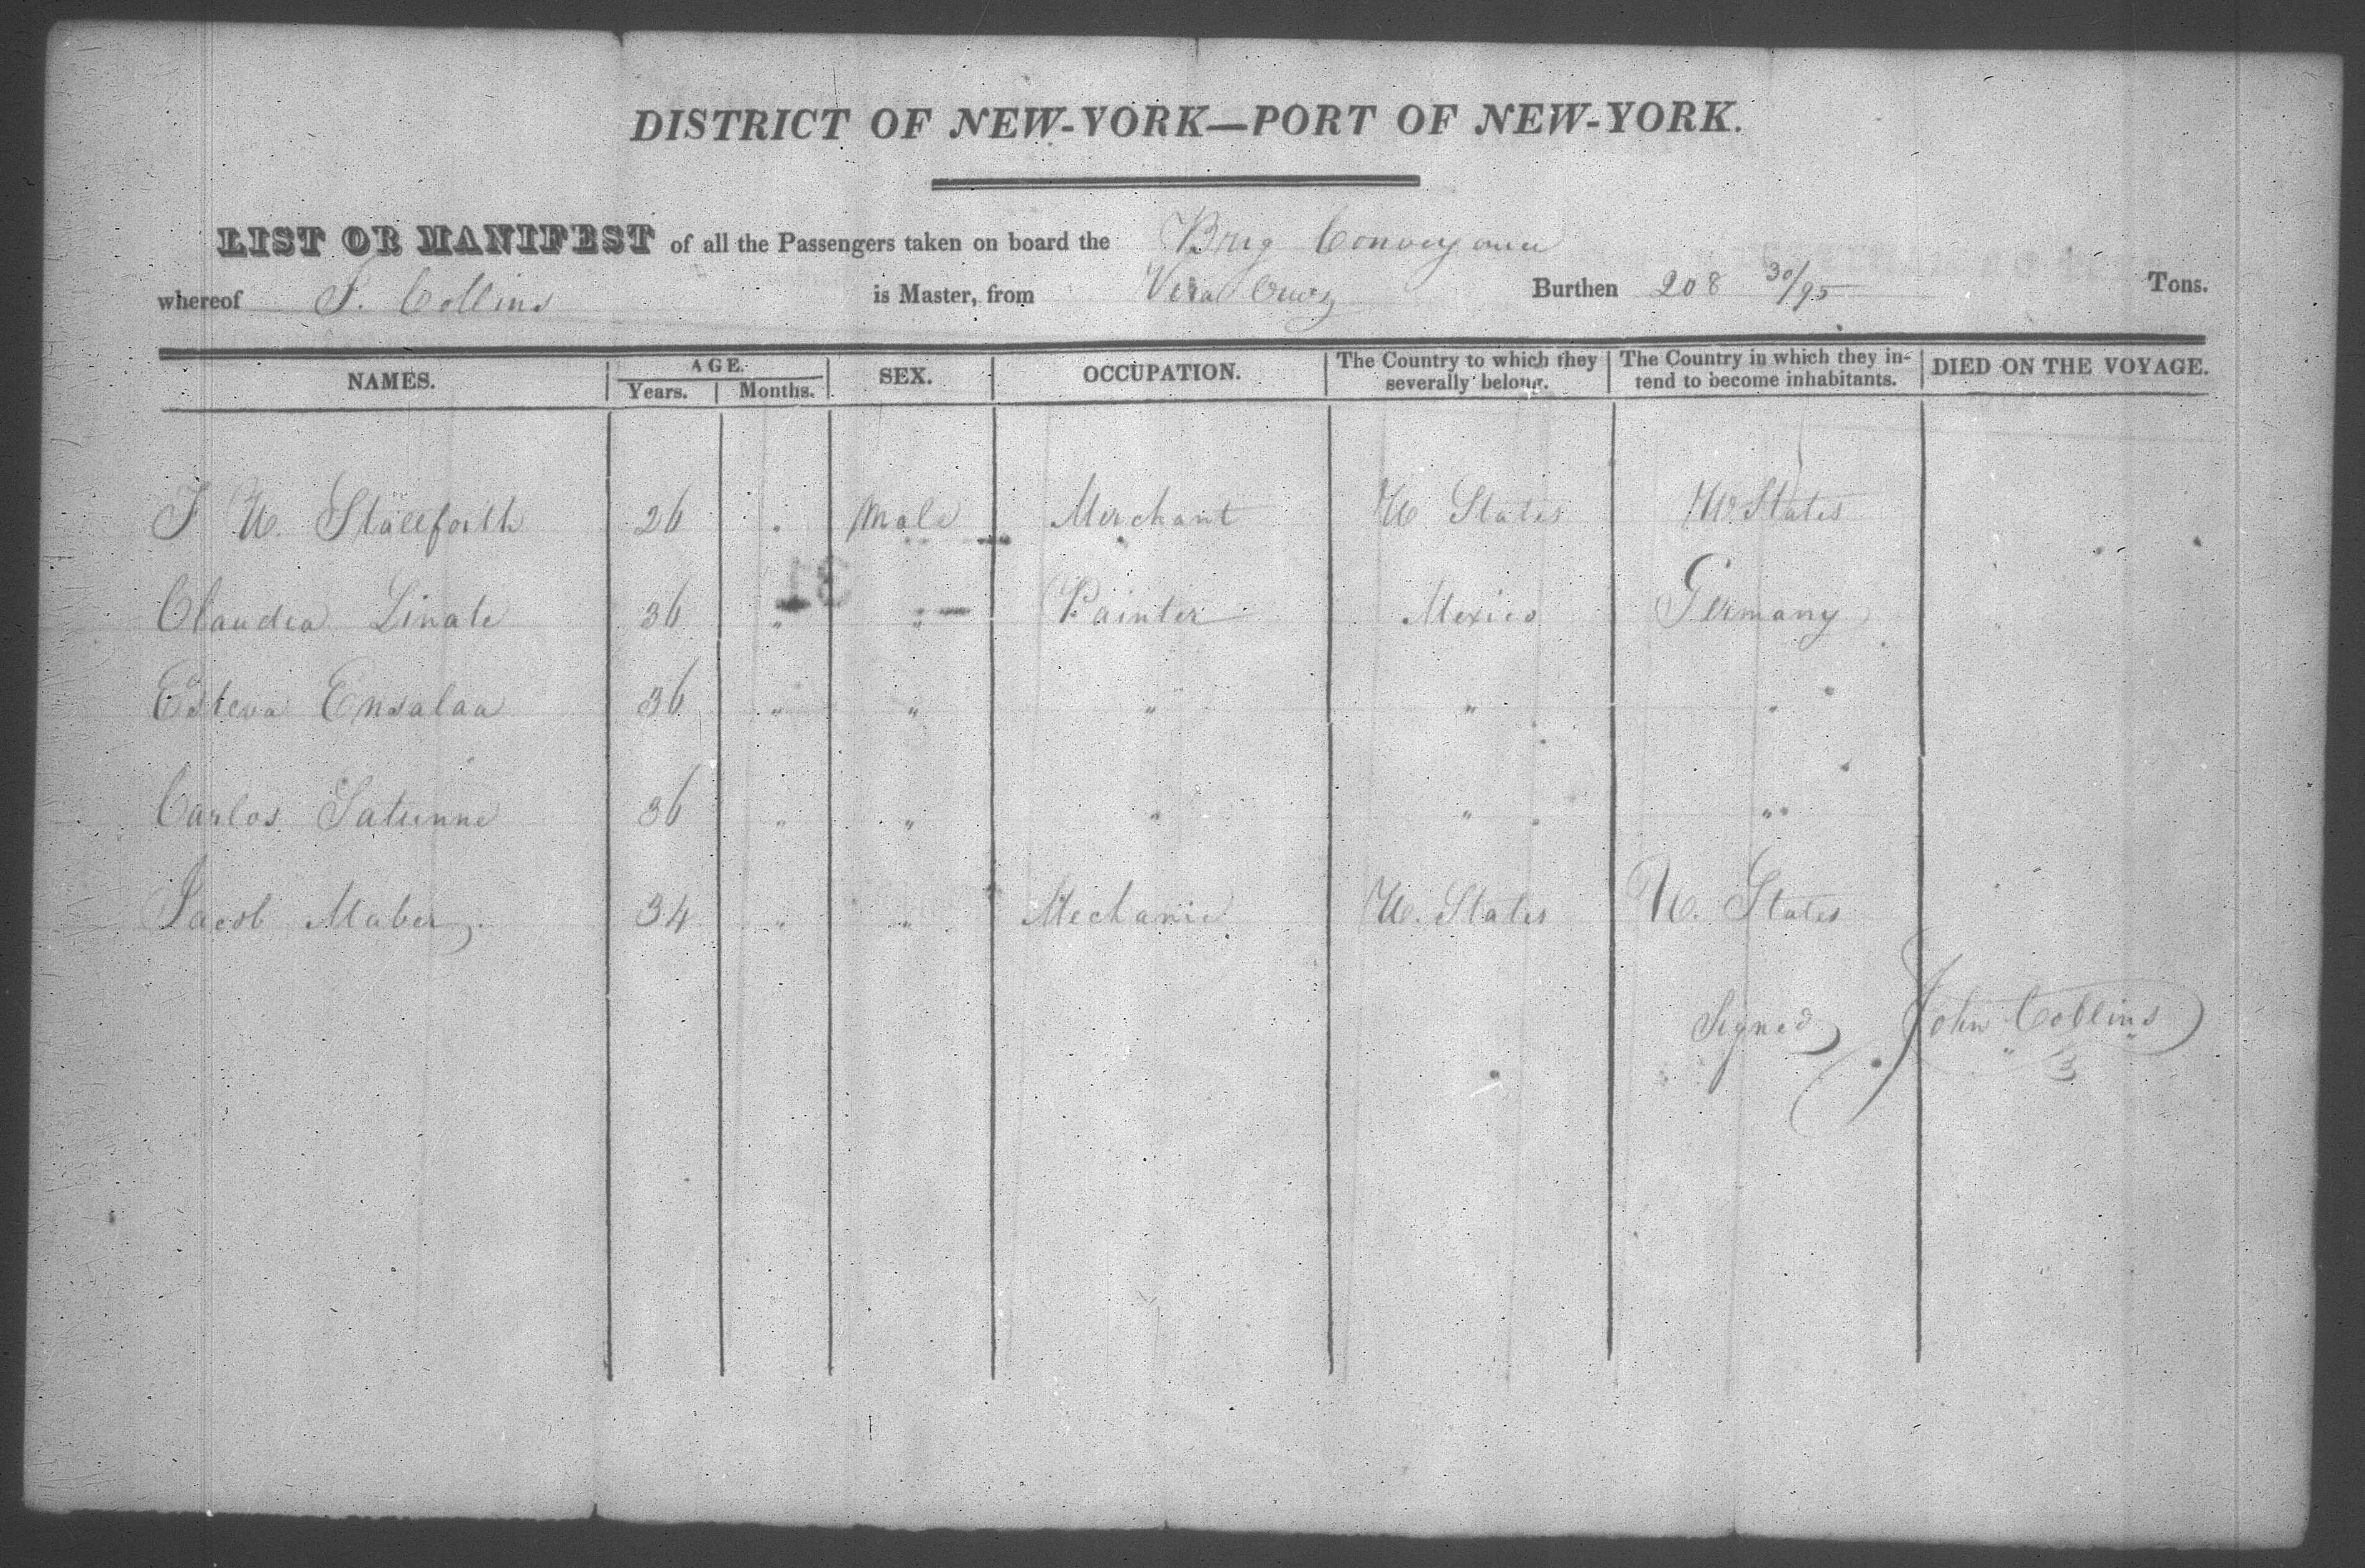 DISTRICT OF NEW-YORK—PORT OF NEW-YORK.
LIST OR MANIFEST of all the Passengers taken on board the Brig Conveyance
whereof J. Collins is Master, from Vera Cruz Burthen 208 30/95 Tons.
NAMES. AGE. Years. Months. SEX. OCCUPATION. The Country to which they severally belong. The Country in which they intend to become inhabitants. DIED ON THE VOYAGE.
J W. Stallforth 26 " Male Merchant U States U. States
Claudia Linate 36 " " Painter Mexico Germany
Esteva Ensalaa 36 " " " " "
Carlos Saturnne 36 " " " " "
Jacob Maber 34 " " Mechanic U. States U. States
Signed John Collins